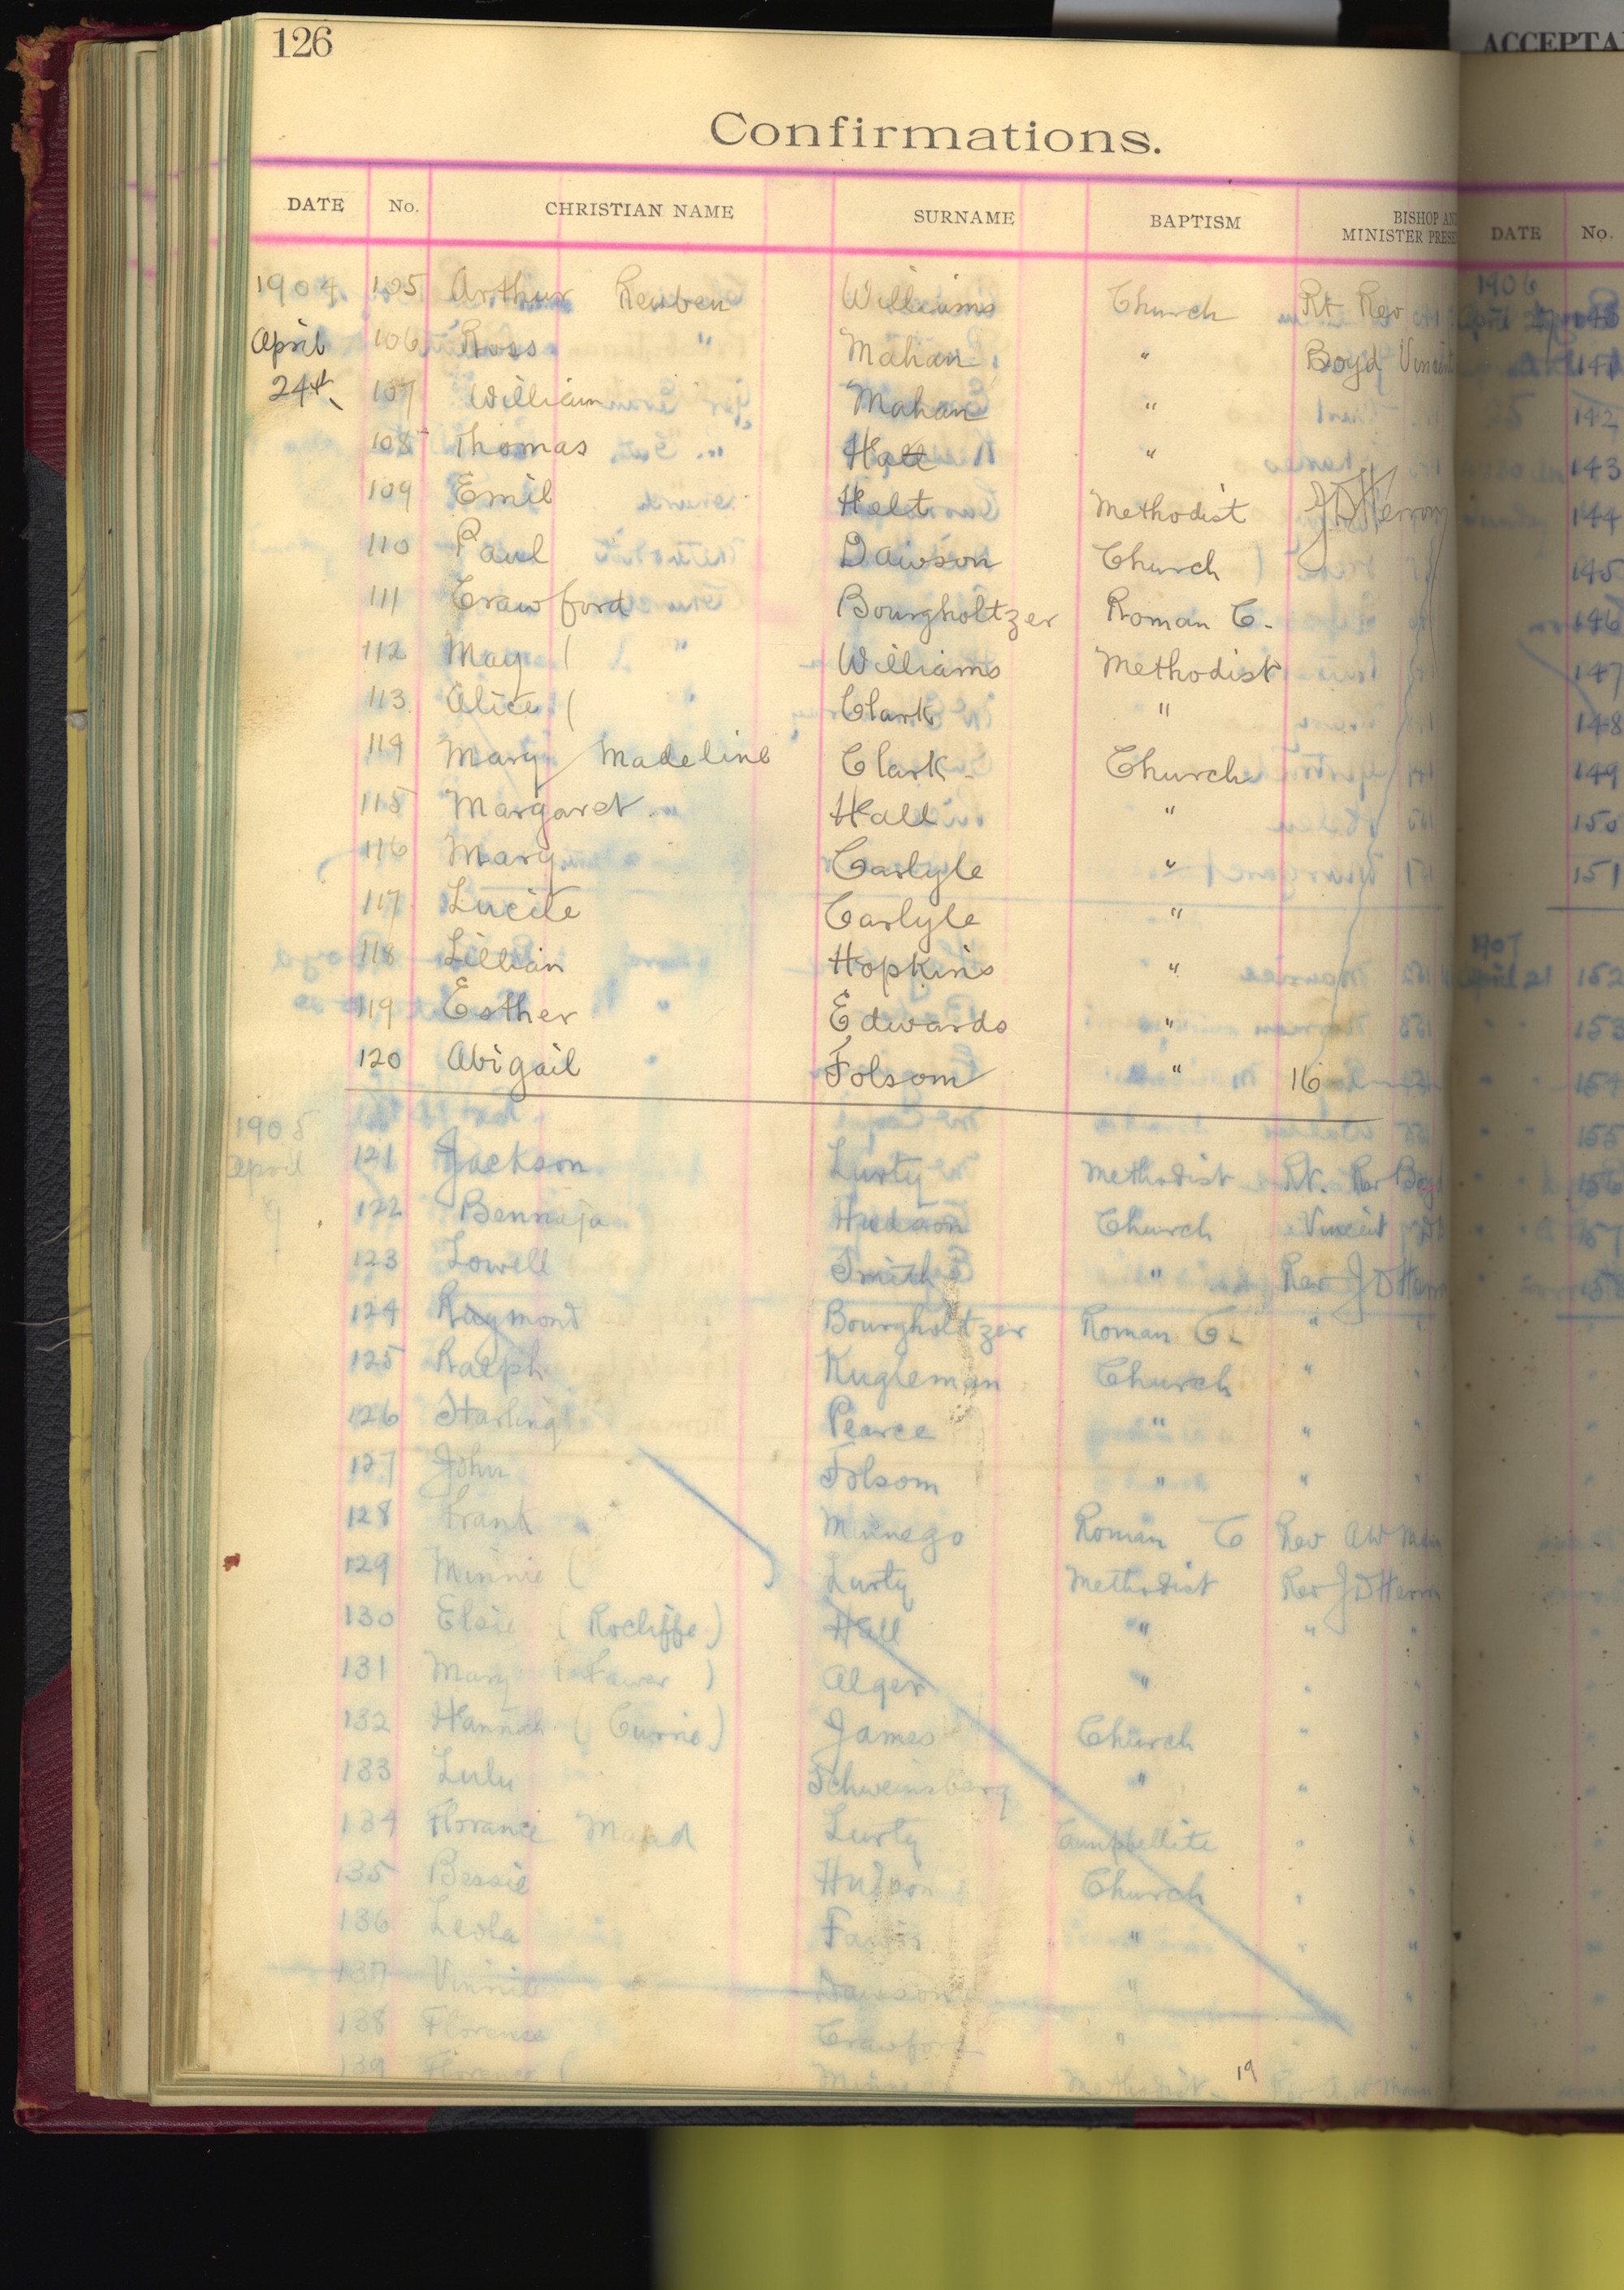 126
ACCEPTA
Confirmations.
DATE No. CHRISTIAN NAME SURNAME BAPTISM BISHOP AN MINISTER PRESE DATE No.
1904 105 Arthur Reuben Williams Church Rt Rev 1906
April 106 Ross " Mahan " Boyd Vincent 141
24th 107 William Mahan " 142
108 Thomas Hatt " 143
109 Emil Helt Methodist JD Herron 144
110 Paul Dawson Church 145
111 Crawford Bourgholtzer Roman C. 146
112 May ( Williams Methodist 147
113 Alice ( Clark " 148
114 Mary Madeline Clark Church 149
115 Margaret Hall " 150
116 Mary Carlyle " 151
117 Lucile Carlyle "
118 Lillian Hopkins " 1907 April 21 152
119 Esther Edwards " 153
120 Abigail Folsom " 16 154
1905 155
April 121 Jackson Lurty Methodist Rt. Rev Boyd 156
9 122 Bennaja Hudson Church Vincent 157
123 Lowell Smith " Rev J D Herron 158
124 Raymond Bourgholtzer Roman C. "
125 Ralph Kugleman Church "
126 Starling Pearce " "
127 John Folsom " "
128 Frank Minnego Roman C Rev A W Mann
129 Minnie ( Lurty Methodist Rev J D Herron
130 Elsie ( Rocliffe ) Hall " " "
131 Mary ( ) Alger " " "
132 Hannah ( Currie ) James Church " "
133 Lulu Schweinsberg " " "
134 Florance Maud Lurty Campbellite " "
135 Bessie Hudson Church " "
136 Leola " " "
137 Vinnie Dawson " "
138 Florence Crawford "
139 Florence ( Methodist 19 Rev A W Mann